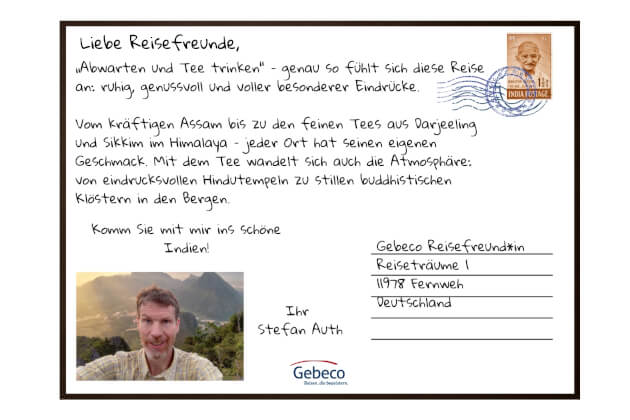 Liebe Reisefreunde,
„Abwarten und Tee trinken" - genau so fühlt sich diese Reise
an: ruhig, genussvoll und voller besonderer Eindrücke.
Vom kräftigen Assam bis zu den feinen Tees aus Darjeeling
und Sikkim im Himalaya - jeder Ort hat seinen eigenen
Geschmack. Mit dem Tee wandelt sich auch die Atmosphäre:
von eindrucksvollen Hindutempeln zu stillen buddhistischen
Klöstern in den Bergen.
Komm Sie mit mir ins schöne
Indien!
Ihr
Stefan Auth
Gebeco
Reisen, die begeistern.
INDIA POSTAGE
Gebeco Reisefreund*in
Reiseträume 1
11978 Fernweh
Deutschland